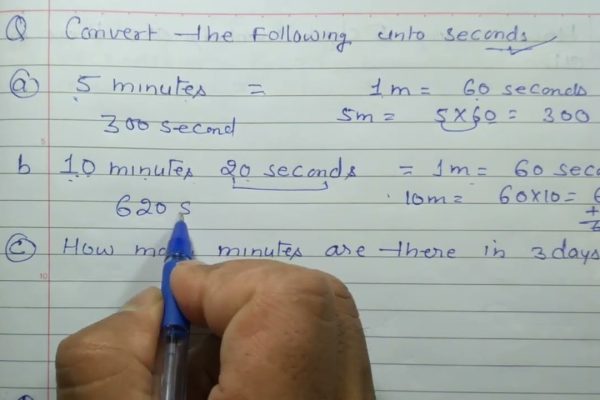 Q Convert the Following unto seconds
a 5 minutes = 1m = 60 seconds
300 second 5m = 5x60 = 300
b 10 minutes 20 seconds = 1m = 60
620 s 10m = 60x10 =
+
C How minutes are there in 3 days